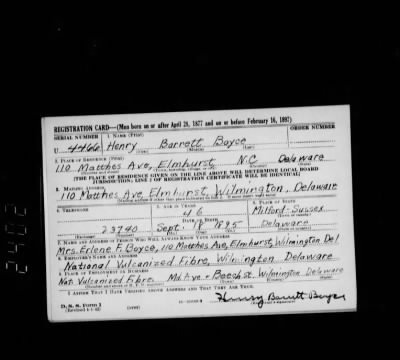 REGISTRATION CARD—(Men born on or after April 28, 1877 and on or before February 16, 1897)
SERIAL NUMBER 1. NAME (Print) ORDER NUMBER
U 4466 Henry Barrett Boyce
(First) (Middle) (Last)
2. PLACE OF RESIDENCE (Print)
110 Matthes Ave, Elmhurst, N.C. Delaware
(THE PLACE OF RESIDENCE GIVEN ON THE LINE ABOVE WILL DETERMINE LOCAL BOARD
JURISDICTION; LINE 2 OF REGISTRATION CERTIFICATE WILL BE IDENTICAL)
3. MAILING ADDRESS
110 Matthes Ave Elmhurst, Wilmington, Delaware
4. TELEPHONE 5. AGE IN YEARS 6. PLACE OF BIRTH
46 Milford-Sussex
DATE OF BIRTH
23740 Sept. 18 1895 Delaware
7. NAME AND ADDRESS OF PERSON WHO WILL ALWAYS KNOW YOUR ADDRESS
Mrs. Edene F. Boyce, 110 Matthes Ave, Elmhurst, Wilmington Del
8. EMPLOYER'S NAME AND ADDRESS
National Vulcanized Fibre, Wilmington Delaware
9. PLACE OF EMPLOYMENT OR BUSINESS
Nat. Vulcanized Fibre. Md. Ave + Beech St. Wilmington Delaware
I AFFIRM THAT I HAVE VERIFIED ABOVE ANSWERS AND THAT THEY ARE TRUE.
D. S. S. Form 1
(Revised 4-1-42)
Henry Barrett Boyce